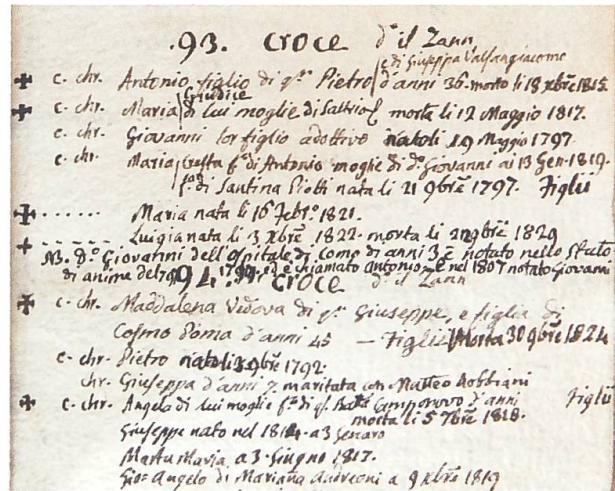 93. Croce d.º il Zann
e di Giuseppa Valsangiacomo
✠ c. chr. Antonio figlio di q.m Pietro d'anni 36. morto li 18 xbrē 1815
Giudice
✠ c. chr. Maria di lui moglie di Saltrio morta li 12 Maggio 1817.
c. chr. Giovanni lor figlio adottivo nato li 19 Maggio 1797
c. chr. Maria f.a di Antonio moglie di d.º Giovanni ai 13 Gen. 1819.
f.a di Santina Piotti nata li 21 9brē 1797. Figli
✠ . . . . . . Maria nata li 16 Febr.º 1821.
+ . . . . . . Luigia nata li 3 xbrē 1822. morta li 9brē 1829
NB. d.º Giovanni dell'Ospitale di Como di anni 3 è notato nello Stato
di anime del ed è chiamato Antonio. E nel 1807 notato Giovanni
94. Croce d.º il Zann
✠ c. chr. Maddalena Vedova di q.m Giuseppe, e figlia di
Cosmo Doma d'anni 45 — Figli Morta 30 9brē 1824
c. chr. Pietro nato li 9brē 1792.
chr. Giuseppa d'anni 7 maritata con Matteo Robbiani
✠ c. chr. Angela di lui moglie f.a di q.m Camponovo d'anni Figli
morta li 5 7brē 1818.
Giuseppe nato nel 1814. a 3 Genaro
Marta Maria a 3. Giugno 1817.
Gio: Angelo di Mariana Andreoni a 9 xbrē 1819